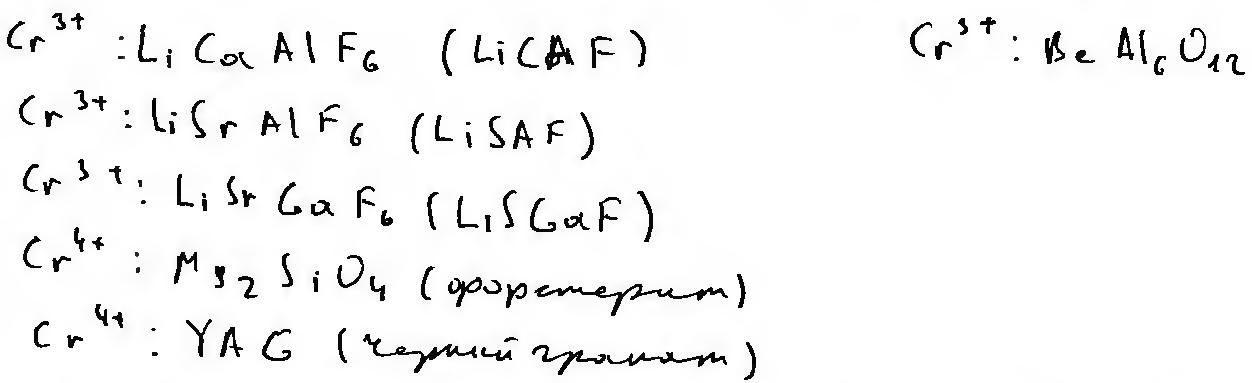 Cr³⁺ : LiCaAlF₆ (LiCAF)
Cr³⁺ : BeAl₆O₁₂
Cr³⁺ : LiSrAlF₆ (LiSAF)
Cr³⁺ : LiSrGaF₆ (LiSGaF)
Cr⁴⁺ : Mg₂SiO₄ (форстерит)
Cr⁴⁺ : YAG (черный гранат)